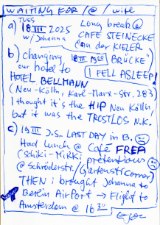 WAITING FOR / @ / wife
a) TUES 18 III 2025 Long break @
w/ Johanna CAFE STEINECKE
(an der KIELER BRÜCKE)
b) changing 18 III
our hotel to I FELL ASLEEP!
HOTEL BELLMANN
(Neu-Kölln, Karl-Marx-Str. 283)
I thought it's the HIP Neu Kölln,
but it was the TROSTLOS N.K.
c) 19 III LAST DAY in B.
Had lunch @ Café FREA
(Schiki-Mikki pretentious)
@ Schröderstr./Gartenstr. Corner)
THEN I brought Johanna to
Berlin Airport → Flight to
Amsterdam @ 16